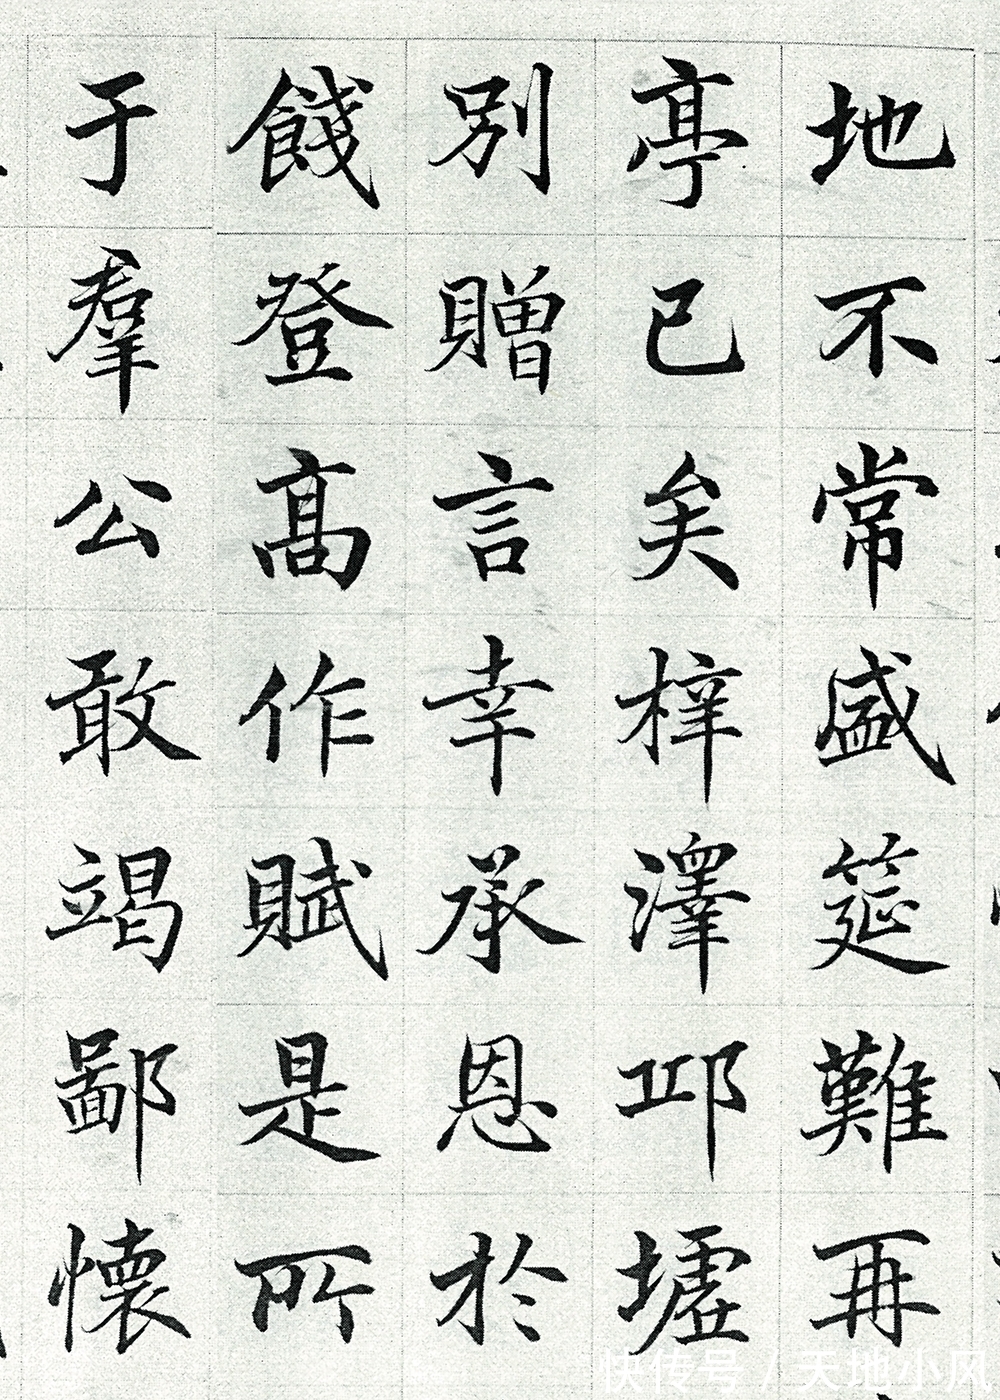 地不常盛筵難再
亭已矣梓澤邱墟
別贈言幸承恩於
餞登高作賦是所
于羣公敢竭鄙懷
快传号/天地小风